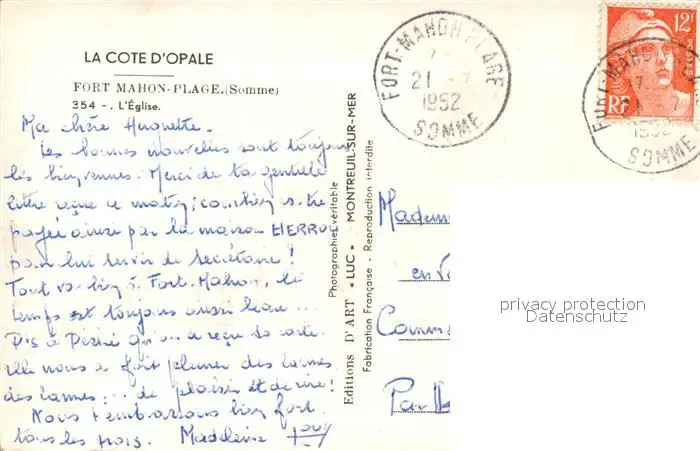 LA COTE D'OPALE
FORT MAHON-PLAGE.(Somme)
354 -. L'Église.
Ma chère Huguette.
Les bonnes nouvelles sont toujours
les bienvenues. Merci de ta gentille
lettre reçue ce matin; combien
payée ainsi par la maison
pour lui servir de secrétaire !
Tout va bien à Fort-Mahon, le
temps est toujours aussi beau ...
Dis à Désiré qu'on a reçu sa carte
elle nous a fait pleurer des larmes
des larmes ... de plaisir et de rire !
Nous t'embrassons bien fort
tous les trois. Madeleine
Photographie véritable
Editions D'ART "LUC" - MONTREUIL-SUR-MER
Fabrication Française - Reproduction interdite
FORT-MAHON PLAGE
21 - 7
1952
SOMME
12F
RF
FORT-MAHON
17
21 7
1952
SOMME
Madem
en
Comm
Par
privacy protection
Datenschutz